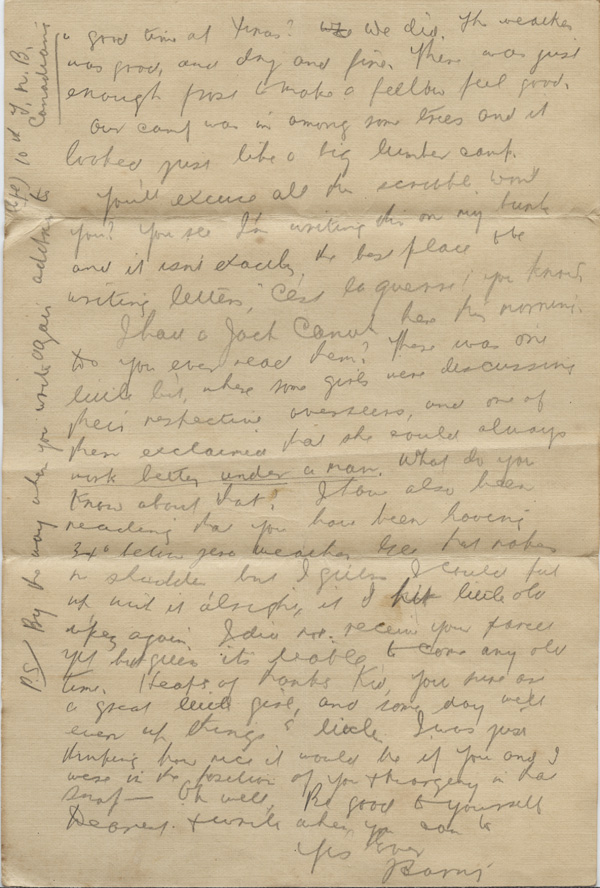 a good time at Xmas? We did. The weather
was good, and dry and fine. There was just
enough frost to make a fellow feel good.
Our camp was in among some trees and it
looked just like a big lumber camp.
You'll excuse all this scribble won't
you? You see I'm writing this on my bunk
and it isn't exactly the best place to be
writing letters, "C'est la guerre" you know.
I had a Jack Canuck here this morning.
Do you ever read them? There was one
little bit, where some girls were discussing
their respective overseers, and one of
them exclaimed that she could always
work better under a man. What do you
know about that? I have also been
reading that you have been having
34° below zero weather. Gee that makes
me shudder but I guess I could put
up with it alright, if I hit little old
again. I did not receive your parcel
yet but guess it's liable to come any old
time. Heaps of thanks Kid, you sure are
a great little girl, and some day we'll
even up things a little. I was just
thinking how nice it would be if you and I
were in the position of you & in that
snap — Oh well, Be good to yourself
Dearest & write when you can to
Yrs Ever
P.S/ By the way when you write again address to
10th Canadians